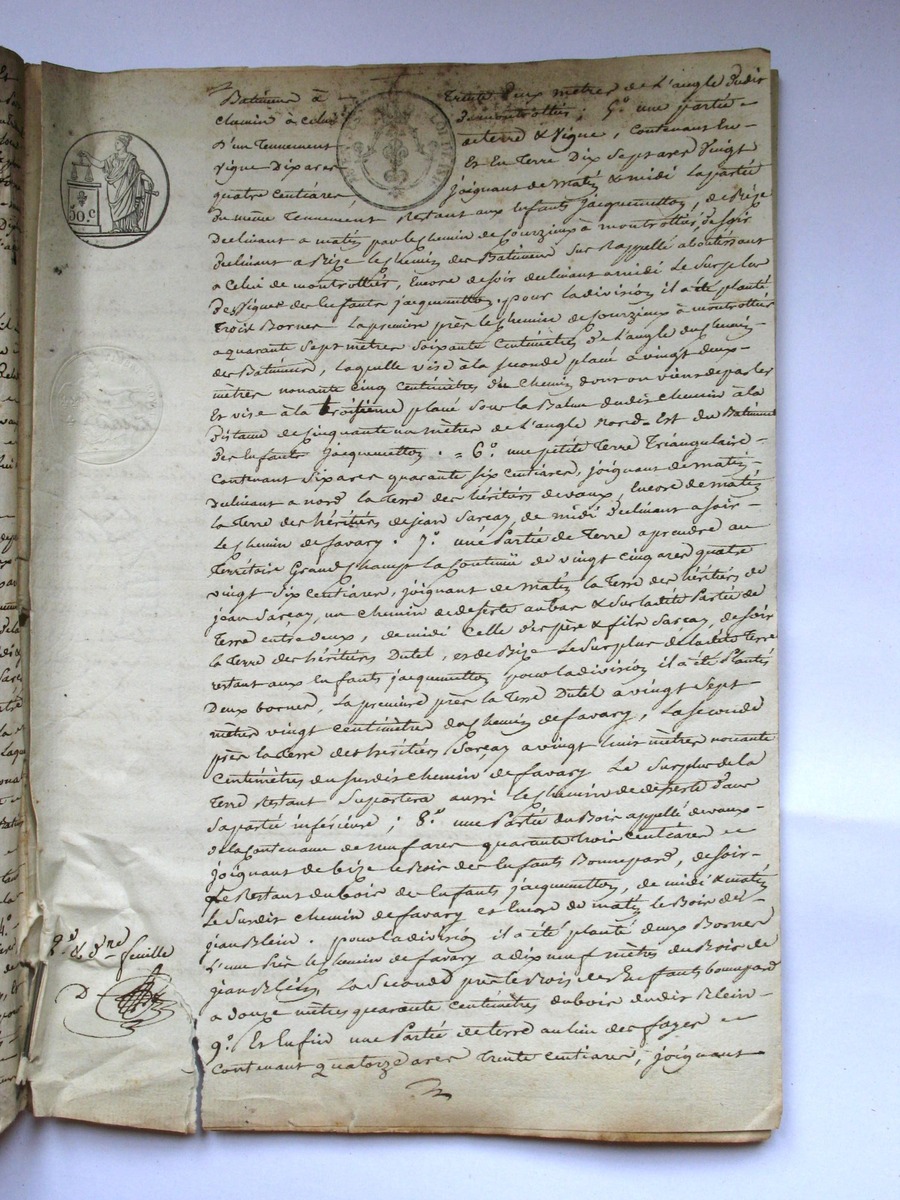 Batiments à trente deux mètres de l'angle dudit
chemin à celui de montrottier; 5.º une partie
d'un Tennement de terre & Vigne, Contenant En
Vigne Dix ares Et En Terre Dix Sept ares Vingt
quatre Centiares joignant de matin & midi la partie
du même Tennement Restant aux Enfants jacquemetton, de Bize
Declinant a matin par le chemin de Sourzieux à montrottier, de Soir
declinant a Bize le chemin des Batiments Sus Rappellé aboutissant
a Celui de montrottier, Encore de Soir declinant a midi Le Surplus
des Vignes des Enfants jacquemetton. pour la division il a été planté
trois Bornes La premiere près le chemin de Sourzieux à montrottier
a quarante Sept mètres Soixante Centimètres de l'angle du chemin
des Batiments, laquelle vise à la Seconde placée a vingt deux
mètres nonante cinq centimètres du chemin dont on viens de parler
Et vise à la troisième placée Sous la Balme dudit chemin à la
Distance de Cinquante un mètres de l'angle nord-Est du Batiment
des Enfants jacquemetton. = 6.º une petite Terre Triangulaire
Contenant Six ares quarante Six centiares, joignant de matin
declinant a nord la Terre des héritiers devaux, Encore de matin
la Terre des héritiers de jean Sarcay, de midi declinant a Soir
le chemin de favary. 7.º une Partie de Terre a prendre au
Territoire Grand champ la Contenue de vingt cinq ares quatre
vingt Six centiares, joignant de matin la Terre des héritiers de
jean Sarcay, un chemin de deserte au bas & Sur ladite Partie de
Terre entre deux, de midi Celle des père & fils Sarcay, de Soir
la Terre des héritiers Dutel, et de Bize Le Surplus de ladite Terre
restant aux Enfants jacquemetton pour la division il a été Plantés
Deux bornes, La premiere près la Terre Dutel a vingt Sept
mètres vingt Centimètres du chemin de favary, La Seconde
près la Terre des héritiers Sarcay a vingt huit mètres nonante
Centimètres du Susdit chemin de favary Le Surplus de la
Terre Restant Suportera aussi le chemin de deserte dans
Sa partie inférieure; 8.º une Partie du Bois appellé devaux
de la Contenance de neuf ares quarante trois Centiares
joignant de bize le Bois des Enfants Bonnepard, de Soir
Le Restant du bois des Enfants jacquemetton, de midi & matin
Le Susdit chemin de favary et Encore de matin le Bois de
jean Blein. pour la division il a été planté deux Bornes
l'une Près le chemin de favary a dix neuf mètres du Bois de
jean Blein, La Seconde près le Bois des Enfants bonnepard
a douze mètres quarante Centimètres du bois dudit Blein
9.º Et Enfin une Partie de terre au lieu des fayes
Contenant quatorze ares trente Centiares, joignant
2.º & d.re feuille
50.c